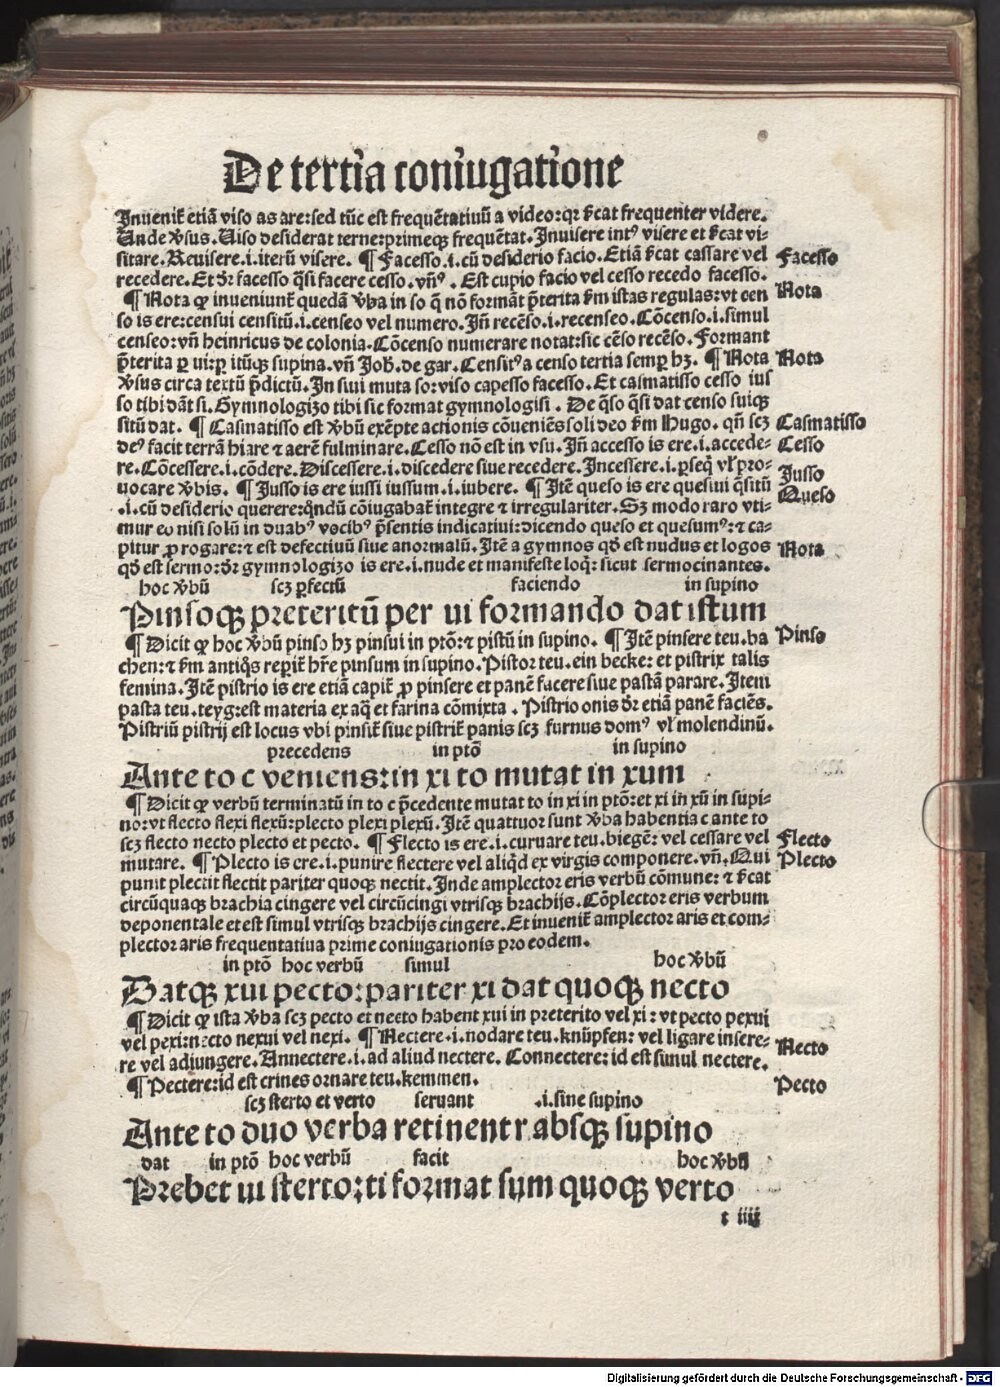 De tertia coniugatione
Inuenit̃ etiã viso as are:sed tũc est frequẽtatiuũ a video:qꝛ s̃cat frequenter videre.
Unde v̓sus. Uiso desiderat terne:primeqꝫ frequẽtat. Inuisere intꝰ visere et s̃cat vi-
sitare. Reuisere.i.iterũ visere. ¶ Facesso.i.cũ desiderio facio. Etiã s̃cat cassare vel
Facesso
recedere. Et dꝛ̃ facesso q̃si facere cesso. vñꝰ. Est cupio facio vel cesso recedo facesso.
¶ Nota qꝙ inueniunt̃ quedã v̓ba in so q̃ nõ formãt p̃terita s̃m istas regulas:vt cen
Nota
so is ere:censui censitũ.i.censeo vel numero. Jñ recẽso.i.recenseo. Cõcenso.i.simul
censeo:vñ heinricus de colonia. Cõcenso numerare notat:sic cẽso recẽso. Formant
p̃terita ꝑ ui:ꝑ itũqꝫ supina. vñ Joh. de gar. Censitꝰa censo tertia semꝑ hꝫ. ¶ Nota
Nota
v̓sus circa textũ p̃dictũ. In siui muta so:viso capesso facesso. Et casmatisso cesso ius
so tibi dãt si. Gymnologizo tibi sic format gymnologisi. De q̃so q̃si dat censo suiqꝫ
sitũ dat. ¶ Casmatisso est v̓bũ exẽpte actionis cõueniẽs soli deo s̃m Hugo. qñ scꝫ
Casmatisso
deꝰ facit terrã hiare ⁊ aerẽ fulminare. Cesso nõ est in vsu. Jñ accesso is ere.i.accede-
Cesso
re. Cõcessere.i.cõdere. Discessere.i.discedere siue recedere. Incessere.i.ꝑseq̃ vl̓ pro-
uocare v̓bis. ¶ Jusso is ere iussi iussum.i.iubere. ¶ Itẽ queso is ere quesiui q̃sitũ
Jusso
Queso
.i.cũ desiderio querere:qñdũ cõiugabat̃ integre ⁊ irregulariter. Sꝫ modo raro vti-
mur eo nisi solũ in duabꝰ vocibꝰ p̃sentis indicatiui:dicendo queso et quesumꝰ:⁊ ca-
pitur ꝓ rogare:⁊ est defectiuũ siue anormalũ. Itẽ a gymnos qd̓ est nudus et logos
Nota
qd̓ est sermo:dꝛ̃ gymnologizo is ere.i.nude et manifeste loq̃: sicut sermocinantes.
hoc v̓bũ scꝫ ꝑfectũ faciendo in supino
Pinsoqꝫ preteritũ per ui formando dat istum
¶ Dicit qꝙ hoc v̓bũ pinso hꝫ pinsui in ptõ:⁊ pistũ in supino. ¶ Itẽ pinsere teu.ba
Pinso
chen:⁊ s̃m antiq̃s reperit̃ hr̃e pinsum in supino. Pistor teu.ein becke: et pistrix talis
femina. Itẽ pistrio is ere etiã capit̃ ꝓ pinsere et panẽ facere siue pastã parare. Item
pasta teu.teyg:est materia ex aq̃ et farina cõmixta. Pistrio onis dꝛ̃ etiã panẽ faciẽs.
Pistriũ pistrij est locus vbi pinsit̃ siue pistrit̃ panis scꝫ furnus domꝰ vl̓ molendinũ.
precedens in ptõ in supino
Ante to c veniens:in xi to mutat in xum
¶ Dicit qꝙ verbũ terminatũ in to c p̃cedente mutat to in xi in ptõ:et xi in xũ in supi-
no:vt flecto flexi flexũ:plecto plexi plexũ. Itẽ quattuor sunt v̓ba habentia c ante to
scꝫ flecto necto plecto et pecto. ¶ Flecto is ere.i.curuare teu.biegẽ: vel cessare vel
Flecto
mutare. ¶ Plecto is cre.i.punire flectere vel aliq̃d ex virgis componere. vñ. Qui
Plecto
punit plectit flectit pariter quoqꝫ nectit. Inde amplector eris verbũ cõmune: ⁊ s̃cat
circũquaqꝫ brachia cingere vel circũcingi vtrisqꝫ brachijs. Cõplector eris verbum
deponentale et est simul vtrisqꝫ brachijs cingere. Et inuenit̃ amplector aris et com-
plector aris frequentatiua prime coniugationis pro eodem.
in ptõ hoc verbũ simul hoc v̓bũ
Datqꝫ xui pecto:pariter xi dat quoqꝫ necto
¶ Dicit qꝙ ista v̓ba scꝫ pecto et necto habent xui in preterito vel xi: vt pecto pexui
vel pexi:necto nexui vel nexi. ¶ Nectere.i.nodare teu.knüpfen: vel ligare insere-
Necto
re vel adiungere. Annectere.i.ad aliud nectere. Connectere: id est simul nectere.
¶ Pectere:id est crines ornare teu.kemmen.
Pecto
scꝫ sterto et verto seruant .i.sine supino
Ante to duo verba retinent r absqꝫ supino
dat in ptõ hoc verbũ facit hoc v̓bũ
Prebet ui sterto:ti format sum quoqꝫ verto
t iiij
Digitalisierung gefördert durch die Deutsche Forschungsgemeinschaft - DFG